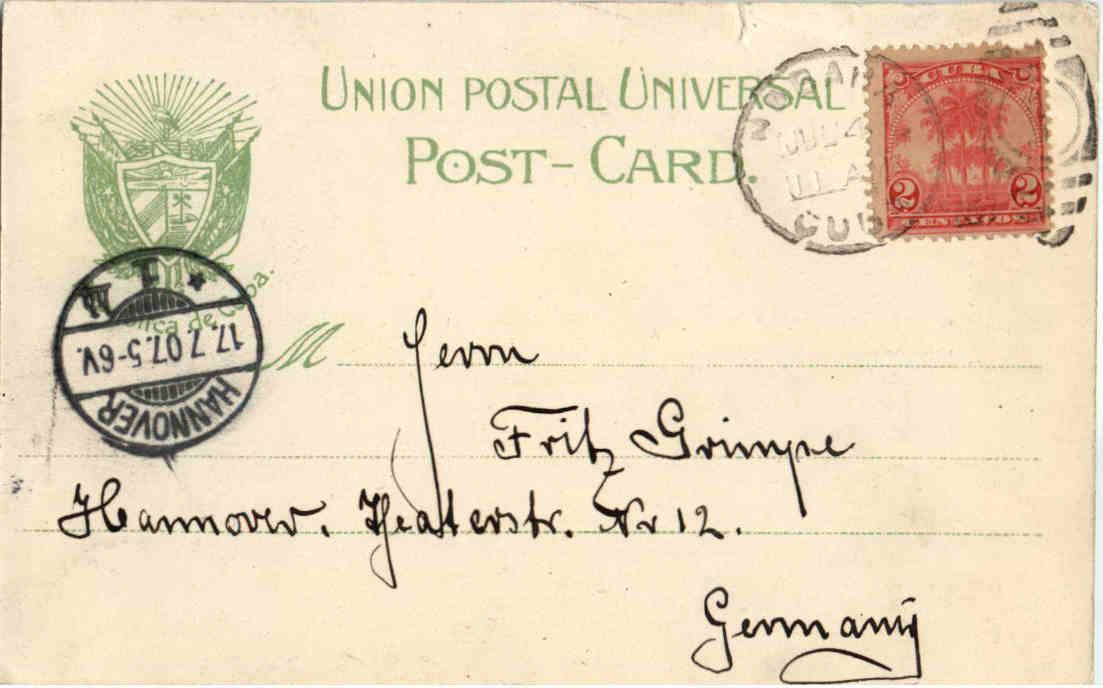 UNION POSTAL UNIVERSAL
POST-CARD.
CUBA
2 2
CENTAVOS
CUBA
de Cuba.
HANNOVER
17.7.07.5-6V.
M
Herrn
Fritz Grimpe
Hannover. Theaterstr. Nr 12.
Germany